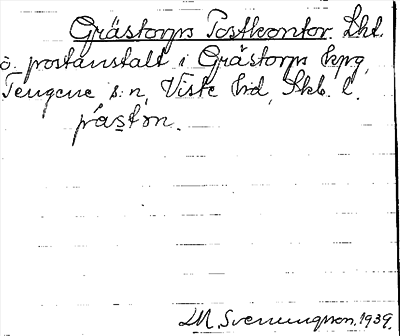 Grästorps Postkontor. Lht.
o. postanstalt i Grästorps kpg,
Tengene s:n, Viste hd, Skb. l.
på stn.
LM. Svenungsson, 1939.